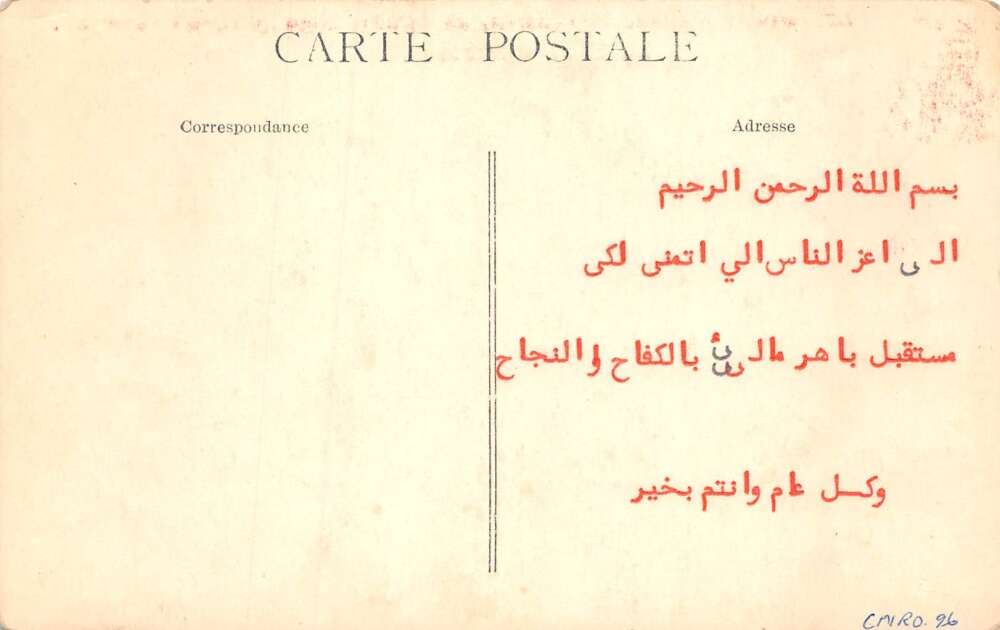 CARTE POSTALE
Correspondance
Adresse
بسم اللة الرحمن الرحيم
الى اعز الناس الي اتمنى لكى
مستقبل باهر مالئ بالكفاح والنجاح
وكل عام وانتم بخير
CMIRO. 96